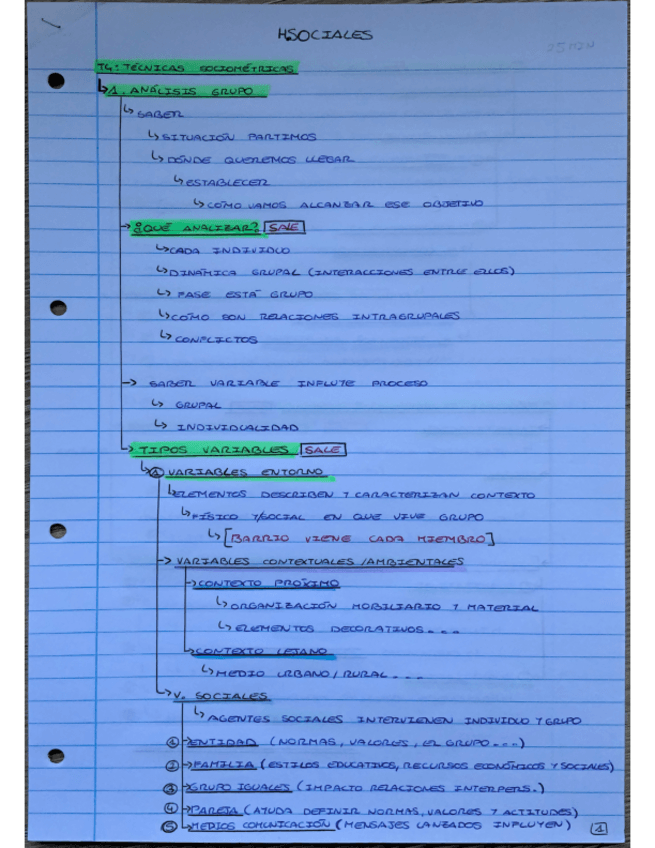 H.SOCIALES
25/11/24
T4: TÉCNICAS SOCIOMÉTRICAS
↳1. ANÁLISIS GRUPO
↳ SABER
↳ SITUACIÓN PARTIMOS
↳ DÓNDE QUEREMOS LLEGAR
↳ ESTABLECER
↳ CÓMO VAMOS ALCANZAR ESE OBJETIVO
→ ¿QUÉ ANALIZAR? SALE
↳ CADA INDIVIDUO
↳ DINÁMICA GRUPAL (INTERACCIONES ENTRE ELLOS)
↳ FASE ESTÁ GRUPO
↳ CÓMO SON RELACIONES INTRAGRUPALES
↳ CONFLICTOS
→ SABER VARIABLE INFLUYE PROCESO
↳ GRUPAL
↳ INDIVIDUALIDAD
→ TIPOS VARIABLES SALE
↳ ① VARIABLES ENTORNO
↳ ELEMENTOS DESCRIBEN Y CARACTERIZAN CONTEXTO
↳ FÍSICO Y/SOCIAL EN QUE VIVE GRUPO
↳ [BARRIO VIENE CADA MIEMBRO]
→ VARIABLES CONTEXTUALES/AMBIENTALES
→ CONTEXTO PRÓXIMO
↳ ORGANIZACIÓN MOBILIARIO Y MATERIAL
↳ ELEMENTOS DECORATIVOS...
→ CONTEXTO LEJANO
↳ MEDIO URBANO/RURAL...
→ V. SOCIALES
↳ AGENTES SOCIALES INTERVIENEN INDIVIDUO Y GRUPO
① → ENTIDAD (NORMAS, VALORES, EL GRUPO...)
② → FAMILIA (ESTILOS EDUCATIVOS, RECURSOS ECONÓMICOS Y SOCIALES)
③ → GRUPO IGUALES (IMPACTO RELACIONES INTERPERS.)
④ → PAREJA (AYUDA DEFINIR NORMAS, VALORES Y ACTITUDES)
⑤ → MEDIOS COMUNICACIÓN (MENSAJES LANZADOS INFLUYEN) 1